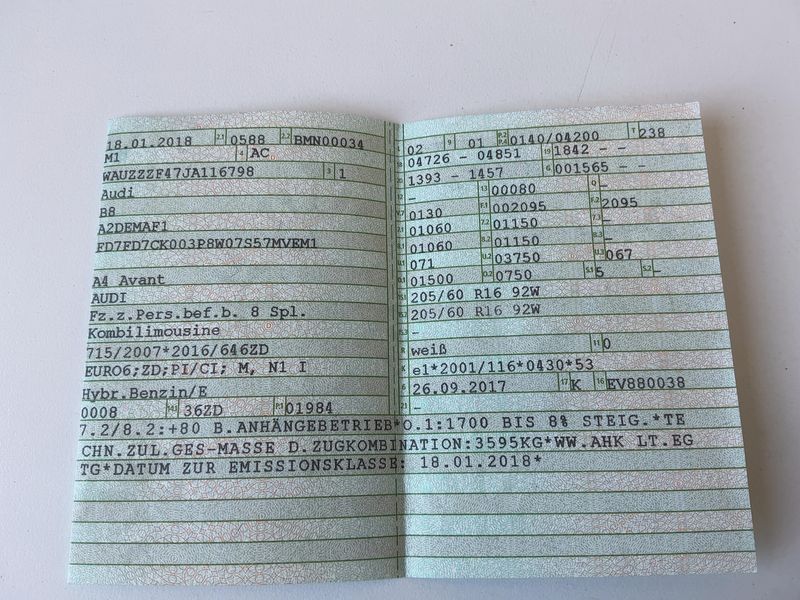 18.01.2018 2.1 0588 2.2 BMN00034
M1 4 AC
WAUZZZF47JA116798 3 1
Audi
B8
A2DEMAF1
FD7FD7CK003P8W07S57MVEM1
A4 Avant
AUDI
Fz.z.Pers.bef.b. 8 Spl.
Kombilimousine
715/2007*2016/646ZD
EURO6;ZD;PI/CI; M, N1 I
Hybr.Benzin/E
0008 14.1 36ZD P.1 01984
7.2/8.2:+80 B.ANHÄNGEBETRIEB*O.1:1700 BIS 8% STEIG.*TE
CHN.ZUL.GES-MASSE D.ZUGKOMBINATION:3595KG*WW.AHK LT.EG
TG*DATUM ZUR EMISSIONSKLASSE: 18.01.2018*
02 9 01 P.2 P.4 0140/04200 T 238
18 04726 - 04851 19 1842 - -
1393 - 1457 G 001565 - -
- 13 00080 Q -
V.7 0130 F.1 002095 F.2 2095
7.1 01060 7.2 01150 7.3 -
8.1 01060 8.2 01150 8.3 -
U.1 071 U.2 03750 U.3 067
O.1 01500 O.2 0750 S.1 5 S.2 -
15.1 205/60 R16 92W
15.2 205/60 R16 92W
15.3 -
R weiß 11 0
K e1*2001/116*0430*53
6 26.09.2017 17 K 16 EV880038
21 -